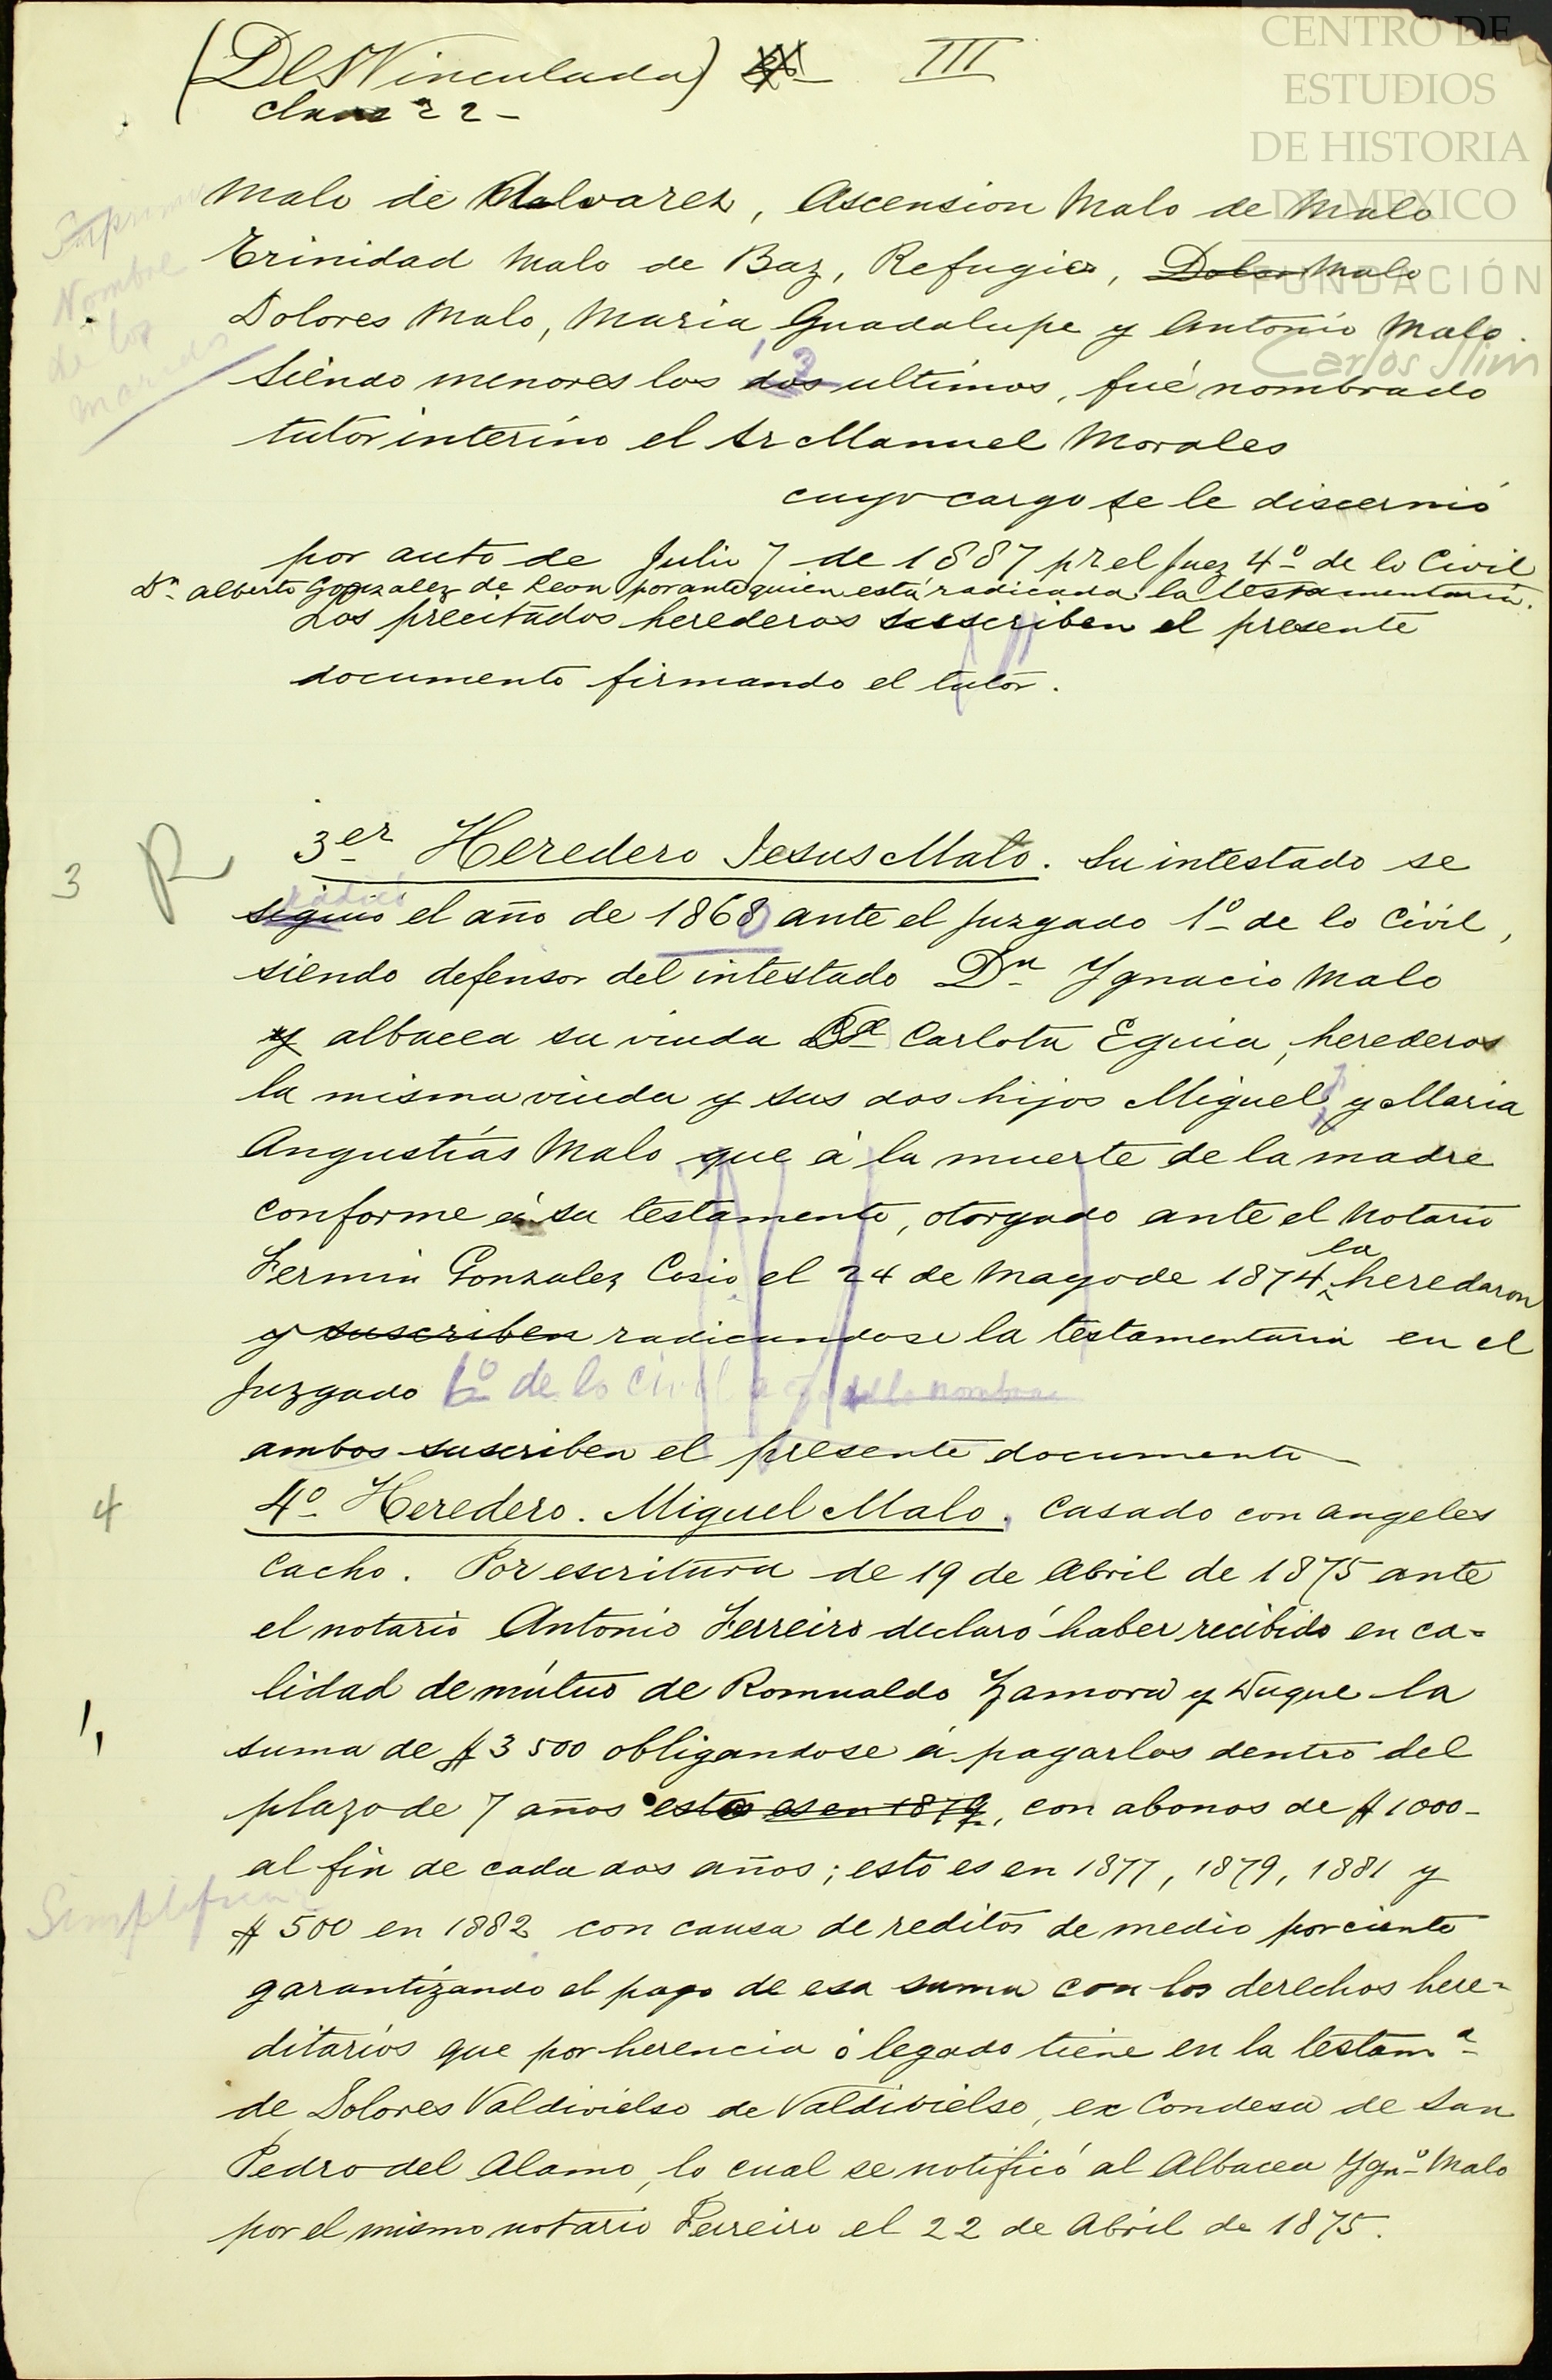 CENTRO DE
ESTUDIOS
DE HISTORIA
DE MEXICO
FUNDACIÓN
Carlos Slim
(DesVinculada) III
clase 22-
Malo de Alvarez, Ascension Malo de Malo
Trinidad Malo de Baz, Refugio, Dolor Malo
Dolores Malo, Maria Guadalupe y Antonio Malo.
Siendo menores los dos 3 ultimos, fué nombrado
tutor interino el Sr Manuel Morales
cuyo cargo se le discernió
por auto de Julio 7 de 1887 pr el Juez 4º de lo Civil
Dn Alberto Gonzalez de Leon por ante quien está radicada la testamentaria.
Los precitados herederos suscriben el presente
documento firmando el tutor.
Nombre
de los
maridos
3 R
3er Heredero Jesus Malo. Su intestado se
radicó
siguió el año de 1868 ante el Juzgado 1º de lo Civil,
siendo defensor del intestado Dn Ygnacio Malo
y albacea su viuda Da Carlota Eguia, herederos
la misma viuda y sus dos hijos Miguel y Maria
Angustias Malo que á la muerte de la madre
conforme á su testamento, otorgado ante el Notario
Fermin Gonzalez Cosio el 24 de Mayo de 1874 la heredaron
y suscriben radicandose la testamentaria en el
Juzgado 1º de lo Civil
ambos suscriben el presente documento
4
4º Heredero. Miguel Malo. Casado con Angeles
Cacho. Por escritura de 19 de Abril de 1875 ante
el notario Antonio Ferreiro declaró haber recibido en ca=
lidad de mútuo de Romualdo Zamora y Duque la
1,
suma de $3500 obligandose á pagarlos dentro del
plazo de 7 años esto es en 1879, con abonos de $1000-
al fin de cada dos años; esto es en 1877, 1879, 1881 y
Simplificar
$500 en 1882 con causa de reditos de medio por ciento
garantizando el pago de esa suma con los derechos here=
ditarios que por herencia ó legado tiene en la testama
de Dolores Valdivielso de Valdivielso, ex Condesa de San
Pedro del Alamo, lo cual se notificó al Albacea Ygno Malo
por el mismo notario Ferreiro el 22 de Abril de 1875.